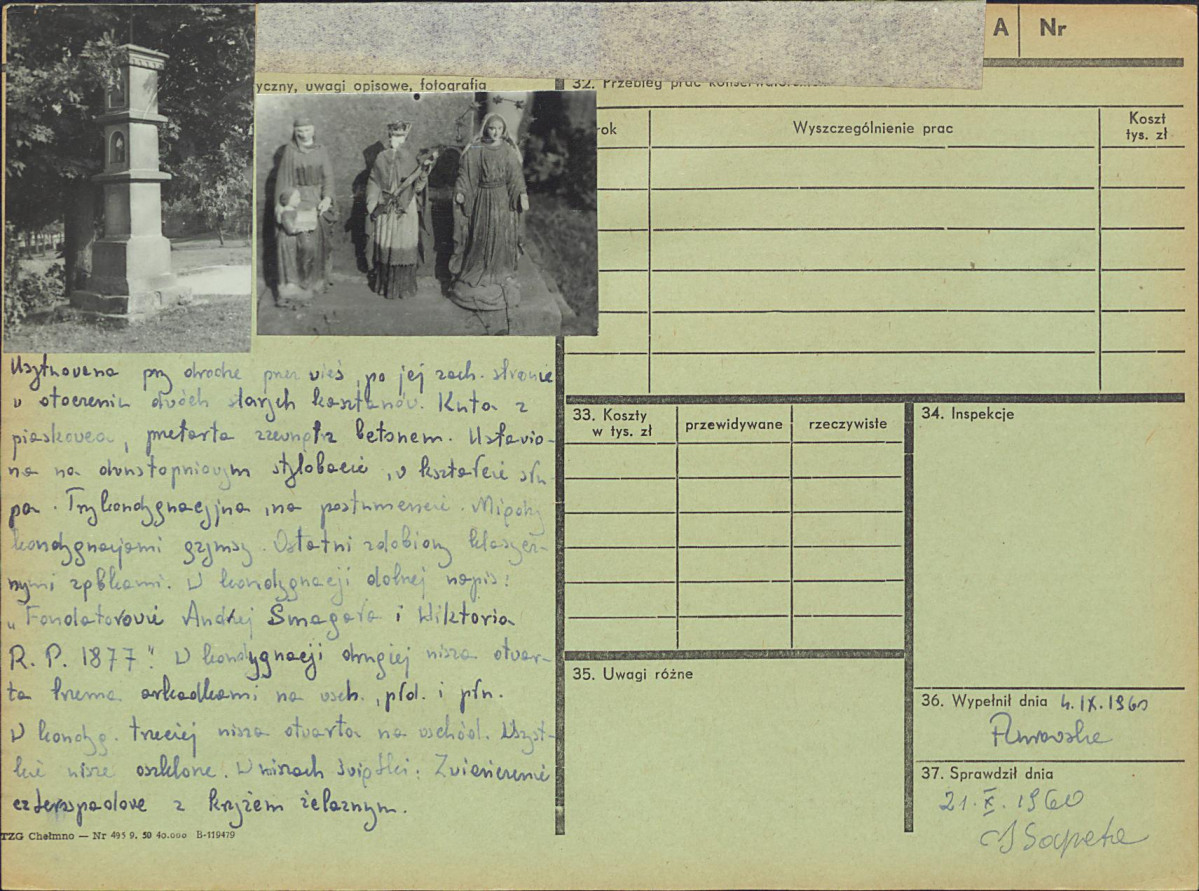 A Nr
yczny, uwagi opisowe, fotografia
32. Przebieg prac konserwator
rok
Wyszczególnienie prac
Koszt
tys. zł
Usytuowana przy drodze przez wieś, po jej zach. stronie
w otoczeniu dwóch starych kasztanów. Kuta z
piaskowca, przetarta zewnątrz betonem. Ustawio-
na na dwustopniowym stylobacie, w kształcie słu-
pa. Trzykondygnacyjna, na postumencie. Między
kondygnacjami gzymsy. Ostatni zdobiony
ząbkami. W kondygnacji dolnej napis:
"Fondatorowie Andrzej Smagała i Wiktoria
R. P. 1877". W kondygnacji drugiej nisza otwar-
ta trzema arkadkami na wsch., płd. i płn.
W kondyg. trzeciej nisza otwarta na wschód. Wszyst-
kie nisze oszklone. W niszach świątki. Zwieńczenie
czterospadowe z krzyżem żelaznym.
33. Koszty
w tys. zł
przewidywane
rzeczywiste
34. Inspekcje
35. Uwagi różne
36. Wypełnił dnia 4.IX.1960
37. Sprawdził dnia
21.X.1960
TZG Chełmno — Nr 495 9. 59 40.000 B-119479